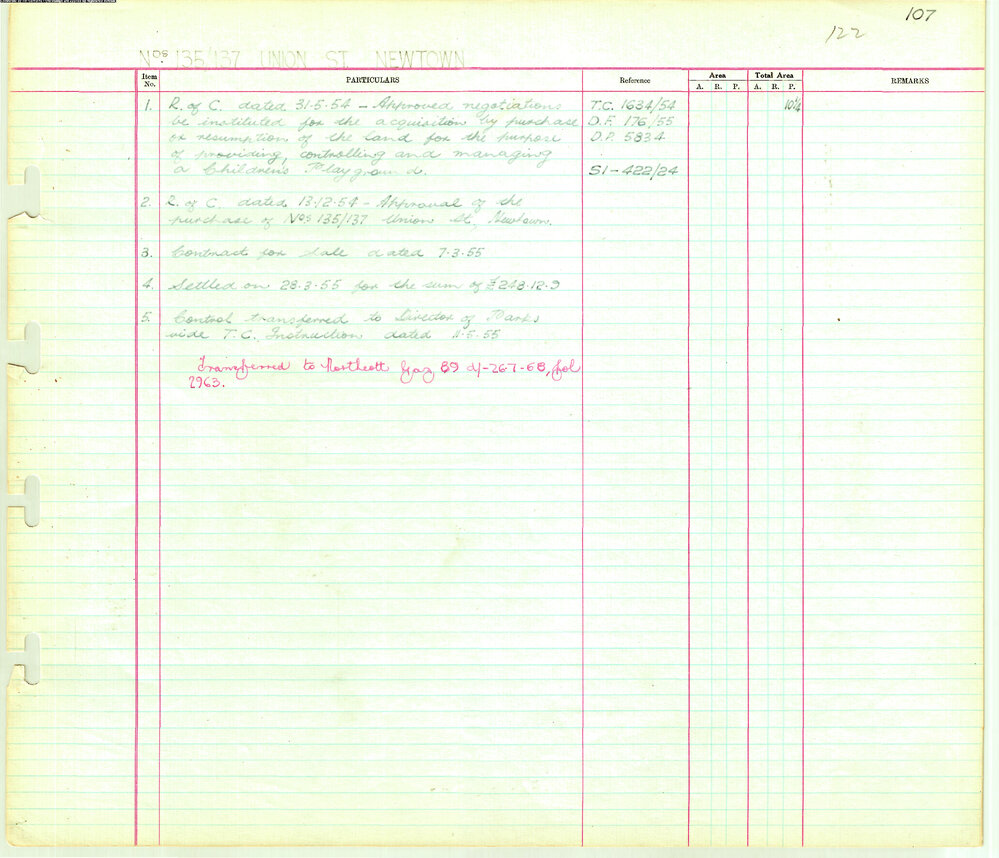 107
122
Nos 135/137 UNION ST. NEWTOWN
Item No. PARTICULARS Reference Area Total Area REMARKS
A. R. P. A. R. P.
1. R. of C. dated 31-5-54 - Approved negotiations T.C. 1634/54 10¼
be instituted for the acquisition by purchase D.F. 176/55
or resumption of the land for the purpose D.P. 5834
of providing, controlling and managing
a Children's Playground. S1-422/24
2. R. of C. dated 13.12.54 - Approval of the
purchase of Nos 135/137 Union St. Newtown.
3. Contract for Sale dated 7.3.55
4. Settled on 28.3.55 for the sum of £248.12.9
5. Control transferred to Director of Parks
vide T.C. Instruction dated 11.5.55
Transferred to Northcott Gaz 89 d/-26-7-68, fol
2963.